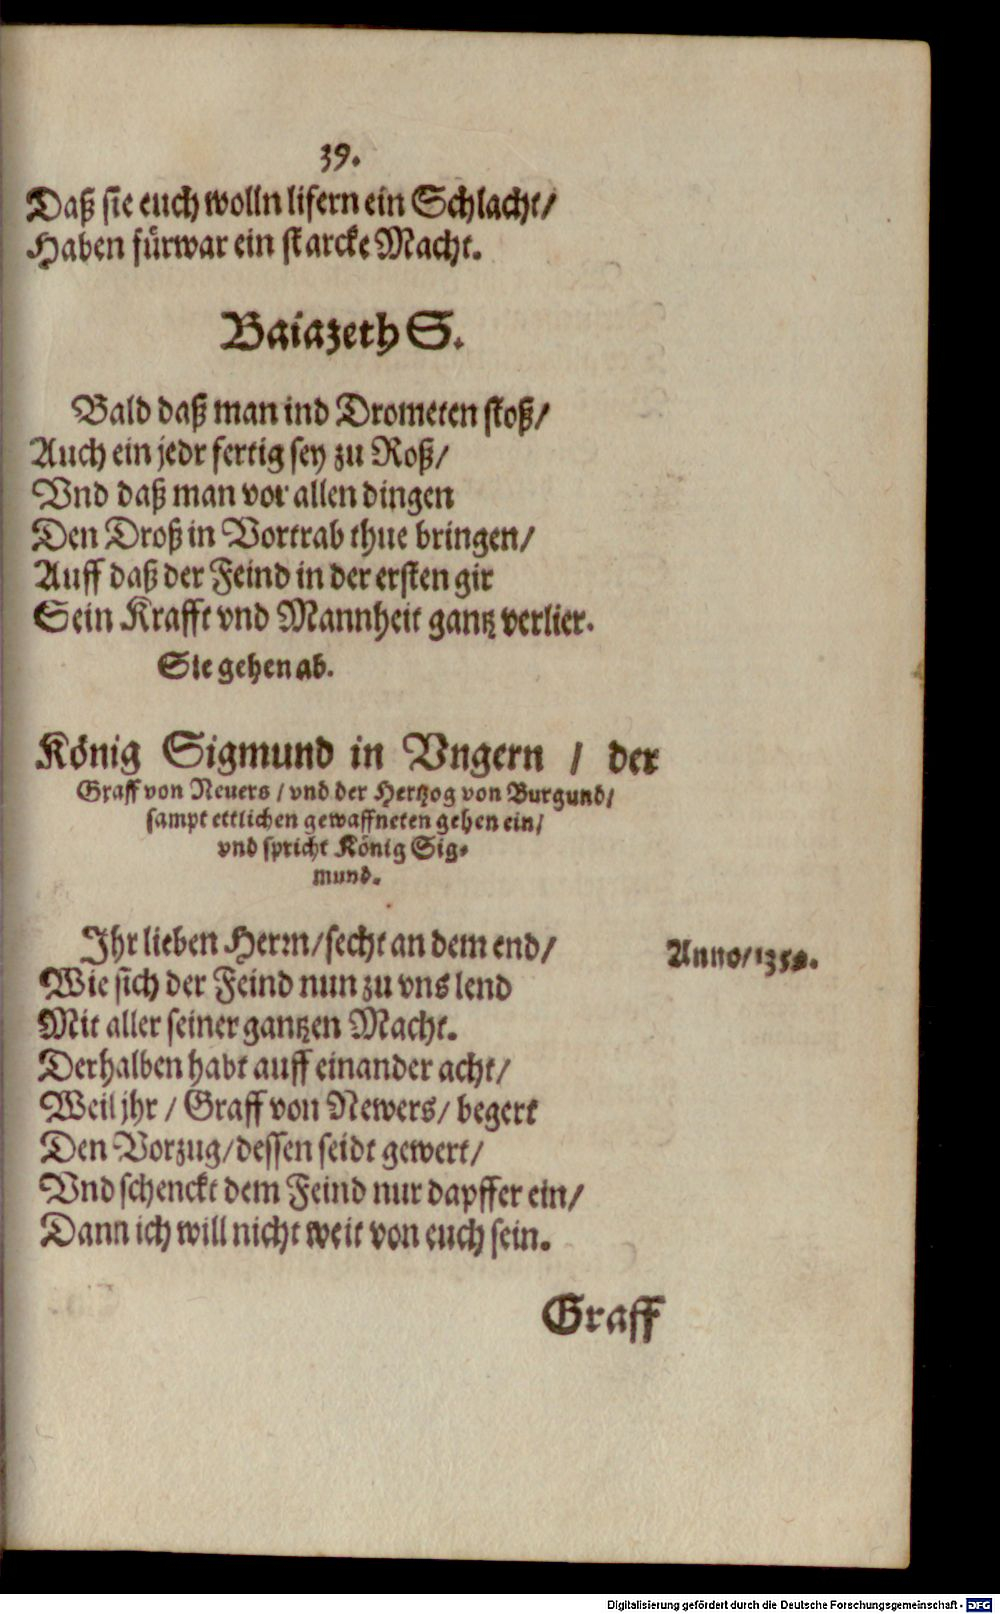 39.
Daß sie euch wolln lifern ein Schlacht/
Haben fürwar ein starcke Macht.
Baiazeth S.
Bald daß man ind Drometen stoß/
Auch ein jedr fertig sey zu Roß/
Vnd daß man vor allen dingen
Den Droß in Vortrab thue bringen/
Auff daß der Feind in der ersten gir
Sein Krafft vnd Mannheit gantz verlier.
Sie gehen ab.
König Sigmund in Vngern / der
Graff von Neuers / vnd der Hertzog von Burgund/
sampt ettlichen gewaffneten gehen ein/
vnd spricht König Sig-
mund.
Ihr lieben Herrn/ secht an dem end/
Anno/
Wie sich der Feind nun zu vns lend
Mit aller seiner gantzen Macht.
Derhalben habt auff einander acht/
Weil jhr / Graff von Newers/ begert
Den Vorzug/ dessen seidt gewert/
Vnd schenckt dem Feind nur dapffer ein/
Dann ich will nicht weit von euch sein.
Graff
Digitalisierung gefördert durch die Deutsche Forschungsgemeinschaft - DFG